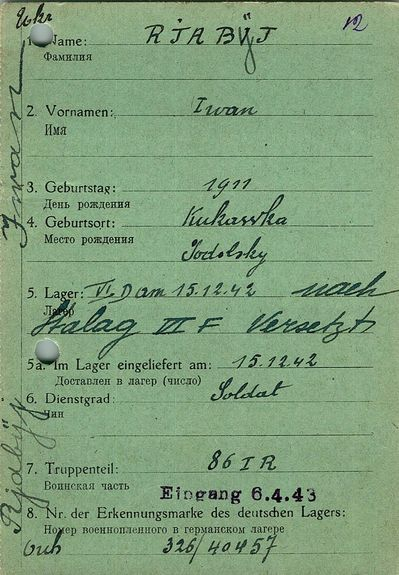 Ukr
12
1. Name: RJABYJ
Фамилия
2. Vornamen: Iwan
Имя
3. Geburtstag: 1911
День рождения
4. Geburtsort: Kukawka
Место рождения
Podolsky
5. Lager: VI D am 15.12.42 nach
Лагер
Stalag VI F Versetzt
5a. Im Lager eingeliefert am: 15.12.42
Доставлен в лагер (число)
6. Dienstgrad: Soldat
Чин
7. Truppenteil: 86 I R
Воинская часть
Eingang 6.4.43
8. Nr. der Erkennungsmarke des deutschen Lagers:
Номер военнопленного в германском лагере
326/40457
Rjabyj Iwan